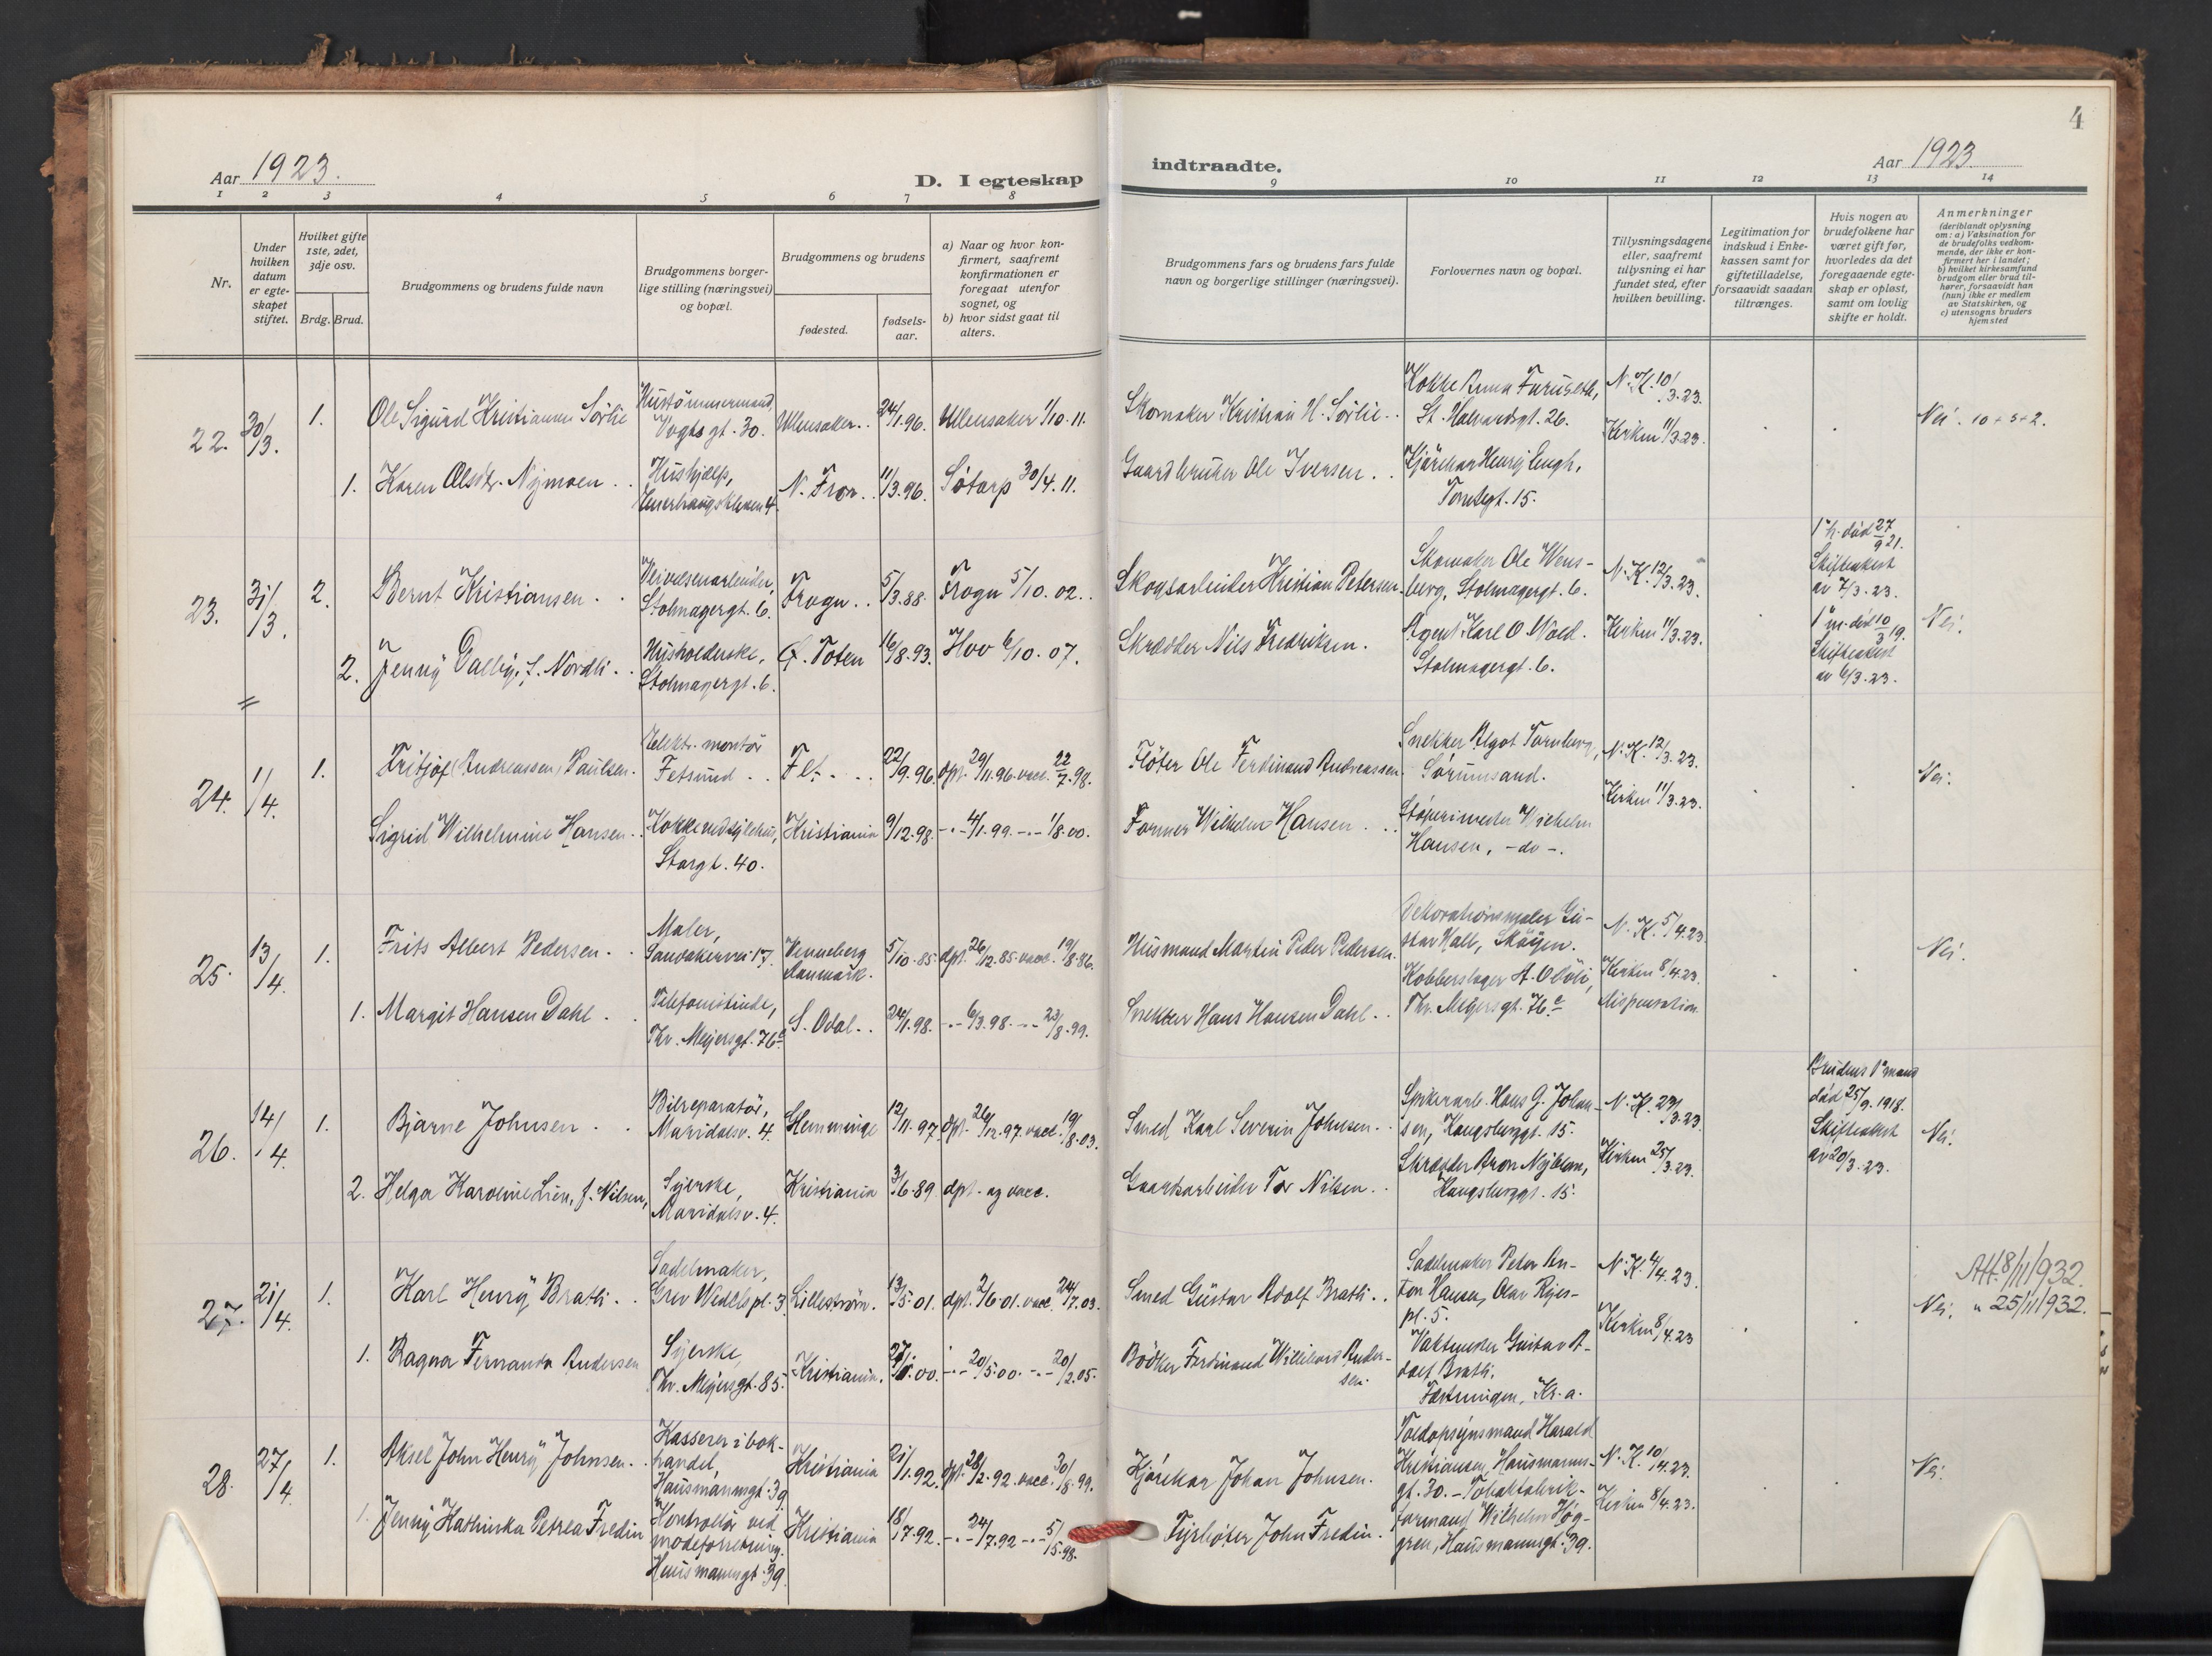 4
Aar 1923.
D. I egteskap
indtraadte.
Aar 1923
1 2 3 4 5 6 7 8 9 10 11 12 13 14
Nr.
Under hvilken datum er egteskapet stiftet.
Hvilket gifte 1ste, 2det, 3dje osv.
Brdg. Brud.
Brudgommens og brudens fulde navn
Brudgommens borgerlige stilling (næringsvei) og bopæl.
Brudgommens og brudens
fødested.
fødselsaar.
a) Naar og hvor konfirmert, saafremt konfirmationen er foregaat utenfor sognet, og
b) hvor sidst gaat til alters.
Brudgommens fars og brudens fars fulde navn og borgerlige stillinger (næringsvei).
Forlovernes navn og bopæl.
Tillysningsdagene eller, saafremt tillysning ei har fundet sted, efter hvilken bevilling.
Legitimation for indskud i Enkekassen samt for giftetilladelse, forsaavidt saadan tiltrænges.
Hvis nogen av brudefolkene har været gift før, hvorledes da det foregaaende egteskap er opløst, samt om lovlig skifte er holdt.
Anmerkninger
(deriblandt oplysning om: a) Vaksination for de brudefolks vedkommende, der ikke er konfirmert her i landet; b) hvilket kirkesamfund brudgom eller brud tilhører, forsaavidt han (hun) ikke er medlem av Statskirken, og c) utensogns bruders hjemsted
22. 30/3. 1. Ole Sigurd Kristiansen Sørlie
Hustömmermand, Vogts gt. 30. Ullensaker. 24/1.96. Ullensaker 1/10.11.
Skomaker Kristian H. Sørlie
Kokke Anna Furuseth, St. Halvardsgt. 26.
N. K. 10/3.23.
Kirken 11/3.23.
Nei. 10+5+2.
1. Karen Olsdtr. Nymoen
Hushjælp, N. Fron 11/3.96. Södorp 30/4.11.
Gaardbruker Ole Iversen
Kjörekar Henry Engh, Tomtegt. 15.
23. 31/3. 2. Bernt Kristiansen
Veivæsenarbeider, Stolmagergt. 6. Frogn 5/3.88. Frogn 5/10.02.
Skogsarbeider Kristian Petersen
Skomaker Ole Wensberg, Stolmagergt. 6.
N. K. 12/3.23.
Kirken 11/3.23.
1° h. död 27/9 21. Skifteattest av 7/3.23.
Nei.
2. Jenny Dalby, f. Nordli
Husholderske, Stolmagergt. 6. Ø. Toten 16/8.93. Hov 6/10.07.
Skrædder Nils Fredriksen.
Agent Karl O Wold. Stolmagergt. 6.
1° m. död 10/3 19. Skifteattest av 6/3.23.
24. 1/4. 1. Fritjof (Andreassen) Paulsen.
Elektr. montör Fetsund Fet 22/9.96. dpt. 29/11.96. vacc. 22/7.98.
Flöter Ole Ferdinand Andreassen
Snekker Algot Tornberg, Sörumsand.
N. K. 12/3.23.
Kirken 11/3.23.
Nei.
Sigrid Wilhelmine Hansen
Storgt. 40. Kristiania 9/12.98. -"- 4/1.99. -"- 1/8.00.
Former Wilhelm Hansen
Støperimester Wilhelm Hansen, -do-.
25. 13/4. 1. Frits Albert Pedersen
Maler, Sandakervei 17. Venneberg Danmark. 5/10.85. dpt. 26/12.85. vacc. 19/8.86.
Husmand Martin Peder Pedersen
Dekorationsmaler Gustav Hall, Sköyen.
N. K. 5/4.23.
Kirken 8/4.23.
Dispensation
Nei.
1. Margit Hansen Dahl
Telefonistinde, Thv. Meyersgt. 76c S. Odal 24/1.98. -"- 6/3.98. -"- 23/8.99.
Snekker Hans Hansen Dahl
Kobberslager A. Thv. Meyersgt. 76c
26. 14/4. 1. Bjarne Johnsen
Bilreparatör, Maridalsv. 4. Hemminge 12/11.97. dpt. 26/12.97. vacc. 19/8.03.
Smed Karl Severin Johnsen
Spikerarb. Hans G. Johansen, Haugsburggt. 15.
N. K. 23/3.23.
Kirken 25/3.23.
Brudens 1° mand död 25/9.1918. Skifteattest av 20/3.23.
Nei.
2. Helga Karoline Lien, f. Nilsen,
Syerske, Maridalsv. 4. Kristiania 3/6.89. dpt. og vacc.
Gaardsarbeider Tor Nilsen
Skrædder Aron Nyblom, Haugsburggt. 15.
27. 21/4. 1. Karl Henry Bratli
Sadelmaker, Grev Wedels pl. 3. Lilleström. 13/5.01. dpt. 2/6.01. vacc. 24/7.03.
Smed Gustav Adolf Bratli
Sadelmaker Peter Anton Hansen, Olav Ryespl. 5.
N. K. 4/4.23.
Kirken 8/4.23
Att. 8/11/1932.
Nei. " 25/11/1932.
1. Ragna Fernanda Andersen
Syerske, Thv. Meyersgt. 85. Kristiania. -"- 20/5.00. -"- 20/2.05.
Bödker Ferdinand Willihard Andersen.
Vaktmester Gustav Adolf Bratli, Fæstningen, Kr.a.
28. 27/4. 1. Aksel John Henry Johnsen
Kasserer i bokhandel, Hausmannsgt. 39 Kristiania 21/1.92. dpt. 28/2.92. vacc. 30/8.99.
Kjörekar Johan Johnsen.
Toldopsynsmand Harald Kristiansen, Hausmannsgt. 30. -
N. K. 10/4.23.
Kirken 8/4.23.
Nei.
1. Jenny Kathinka Petrea Fredin
Kontrollör ved modeforretning. Hausmannsgt. 39. Kristiania 18/7.92. -"- 24/7.92 -"- 5/5.98.
Fyrböter John Fredin.
Tobakfabrikformand Wilhelm Höggren, Hausmannsgt. 39.